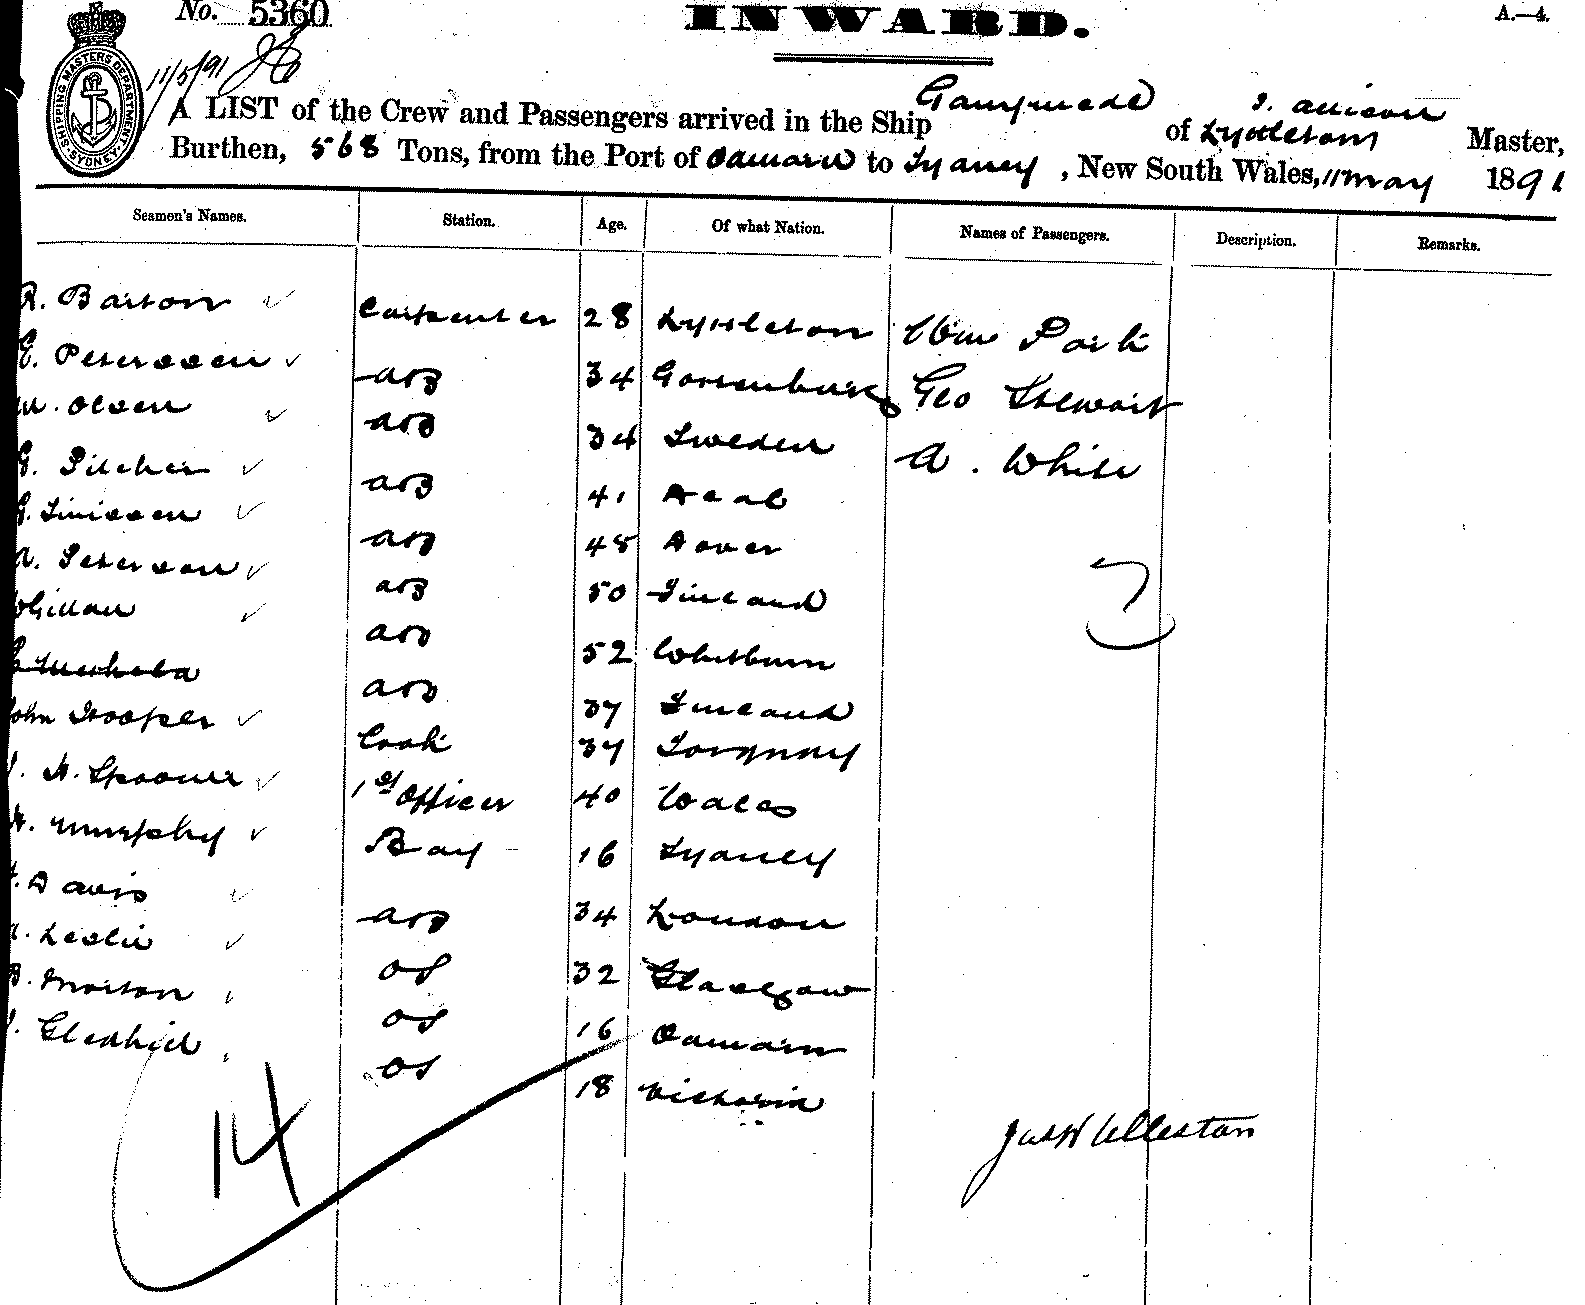 No. 5360
INWARD.
A.—4.
SHIPPING MASTERS DEPARTMENT SYDNEY
11/5/91
A LIST of the Crew and Passengers arrived in the Ship Ganymede of Lyttleton, J. Allison Master,
Burthen, 568 Tons, from the Port of Oamaru to Sydney, New South Wales, 11 May 1891
Seamen's Names. Station. Age. Of what Nation. Names of Passengers. Description. Remarks.
R. Barton Carpenter 28 Lyttleton Wm Park
E. Peterssen AB 34 Gottenburg Geo Stewart
W. Olsen AB 34 Sweden A. White
G. Pitcher AB 41 Deal
AB 48 Dover
A. Peterson AB 50 Finland
AB 52 Whitburn
AB 37 Finland
John Hooper Cook 37 Torquay
H. Spooner 1st Officer 40 Wales
H. Murphy Boy 16 Sydney
Davis AB 34 London
Leslie OS 32 Glasgow
B. Morton OS 16 Oamaru
Gledhill OS 18 Victoria
14